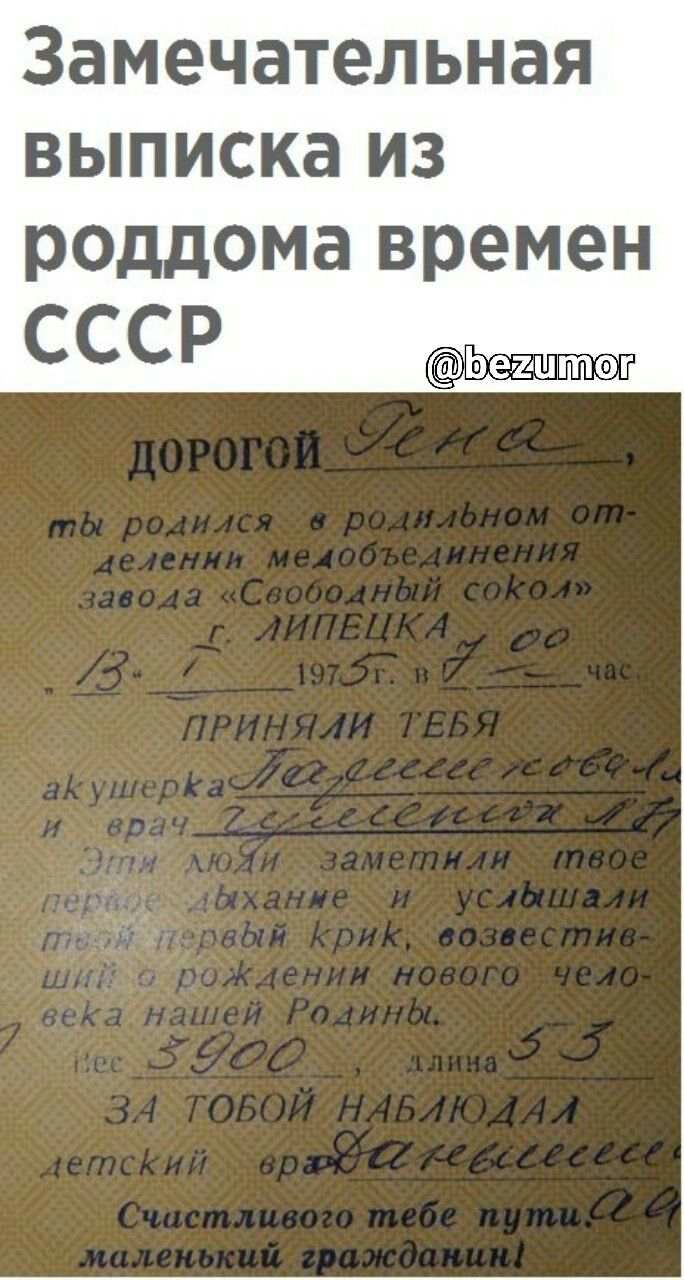 Замечательная
выписка из
роддома времен
СССР
@bezumor
ДОРОГОЙ Гена,
ты родился в родильном от-
делении медобъединения
завода «Свободный сокол»
г. ЛИПЕЦКА
„ 13 “ I 1975г. в 7 00 час.
ПРИНЯЛИ ТЕБЯ
акушерка
и врач
Эти люди заметили твое
первое дыхание и услышали
твой первый крик, возвестив-
ший о рождении нового чело-
века нашей Родины.
Вес 3900, длина 53
ЗА ТОБОЙ НАБЛЮДАЛ
детский врач
Счастливого тебе пути,
маленький гражданин!